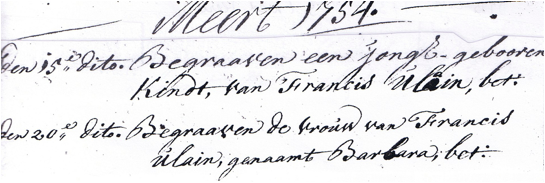 Meert 1754.
den 15e dito. Begraaven een jongst-gebooren
Kindt, van Francis Ulain, bet:
den 20e dito. Begraaven de vrouw van Francis
Ulain, genaamt Barbara, bet: